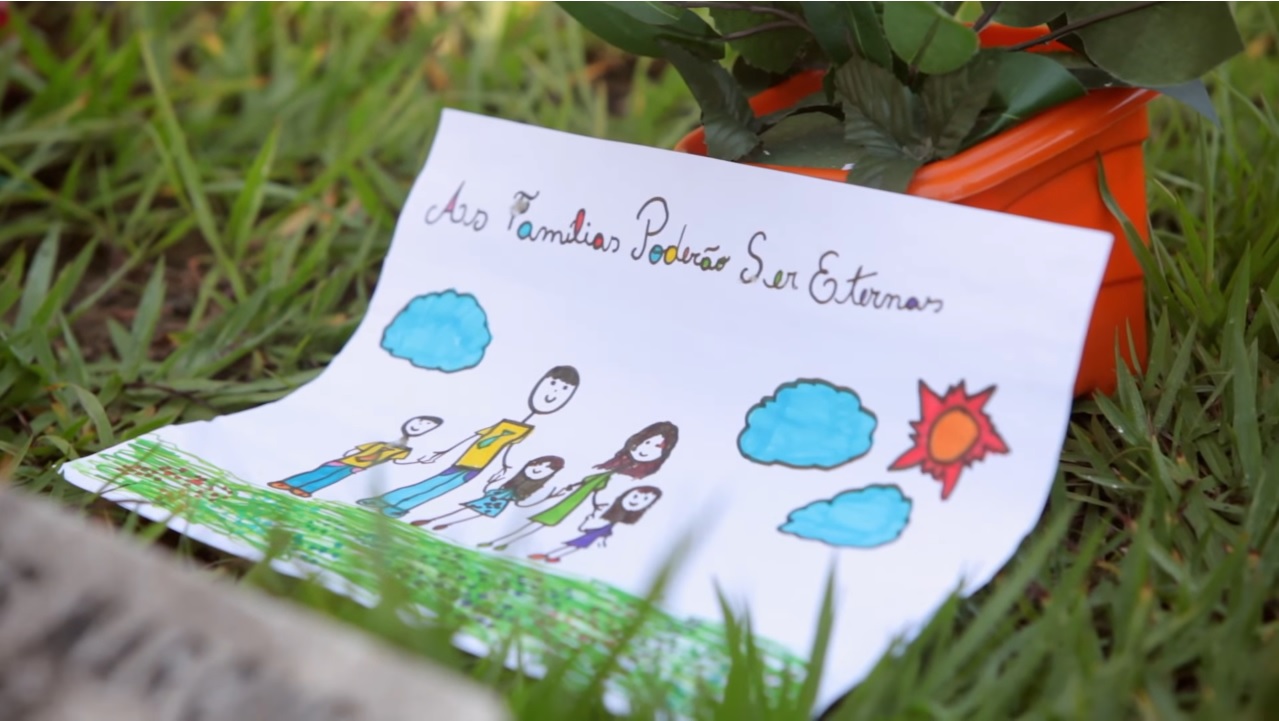 As Famílias Poderão Ser Eternas